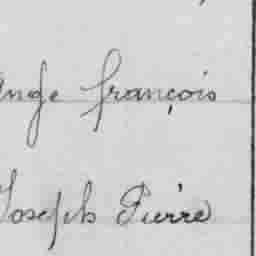 Ange françois
Joseph Pierre